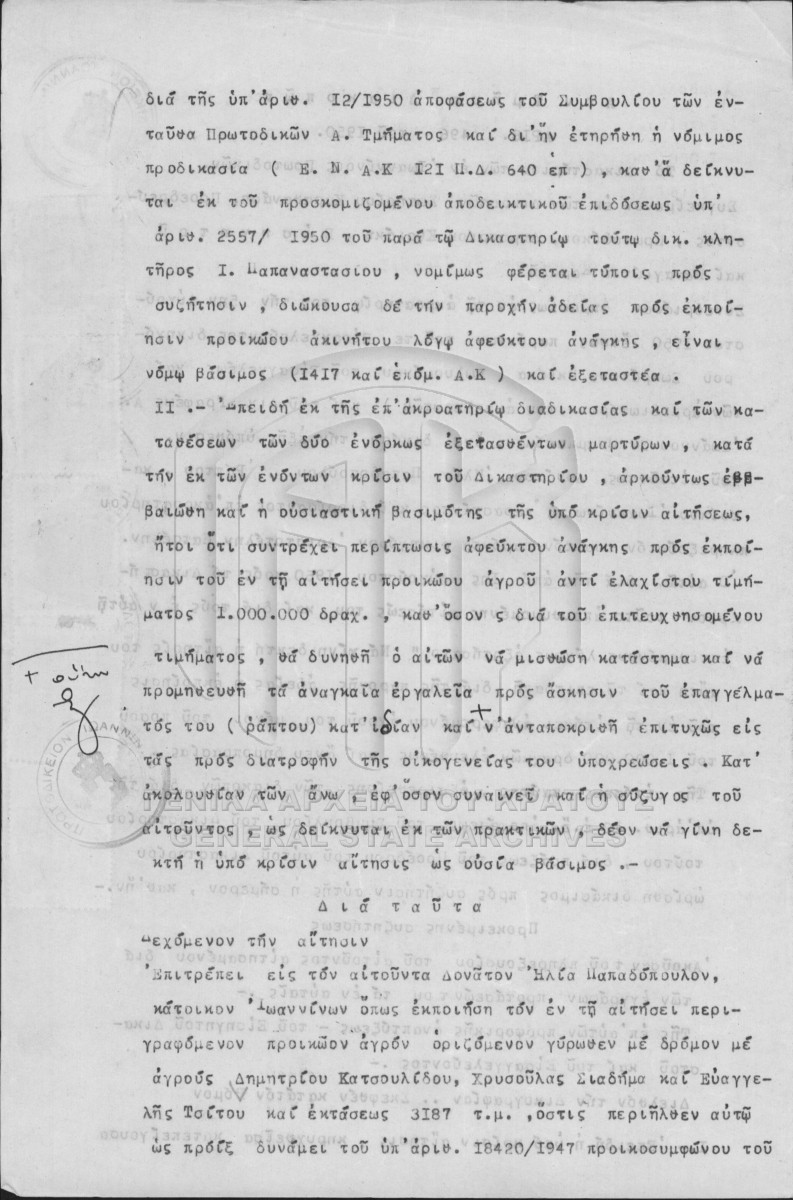 διά τῆς ὑπ'ἀριθ. I2/I950 ἀποφάσεως τοῦ Συμβουλίου τῶν ἐν-
ταῦθα Πρωτοδικῶν Α. Τμήματος καί δι'ἥν ἐτηρήθη ἡ νόμιμος
προδικασία ( Ε. Ν. Α.Κ I2I Π.Δ. 640 ἐπ ) , καθ'ἅ δείκνυ-
ται ἐκ τοῦ προσκομιζομένου ἀποδεικτικοῦ ἐπιδόσεως ὑπ'
ἀριθ. 2557/ I950 τοῦ παρά τῷ Δικαστηρίῳ τούτῳ δικ. κλη-
τῆρος Ι. Παπαναστασίου , νομίμως φέρεται τύποις πρός
συζήτησιν , διώκουσα δέ τήν παροχήν ἀδείας πρός ἐκποί-
ησιν προικώου ἀκινήτου λόγῳ ἀφεύκτου ἀνάγκης , εἶναι
νόμῳ βάσιμος (I4I7 καί ἑπόμ. Α.Κ ) καί ἐξεταστέα .
ΙΙ .- Ἐπειδή ἐκ τῆς ἐπ'ἀκροατηρίῳ διαδικασίας καί τῶν κα-
ταθέσεων τῶν δύο ἐνόρκως ἐξετασθέντων μαρτύρων , κατά
τήν ἐκ τῶν ἐνόντων κρίσιν τοῦ Δικαστηρίου , ἀρκούντως ἐββ-
βαιώθη καί ἡ οὐσιαστική βασιμότης τῆς ὑπό κρίσιν αἰτήσεως,
ἤτοι ὅτι συντρέχει περίπτωσις ἀφεύκτου ἀνάγκης πρός ἐκποί-
ησιν τοῦ ἐν τῇ αἰτήσει προικώου ἀγροῦ ἀντί ἐλαχίστου τιμή-
ματος I.000.000 δραχ. , καθ'ὅσον ς διά τοῦ ἐπιτευχθησομένου
τιμήματος , θά δυνηθῇ ὁ αἰτῶν νά μισθώσῃ κατάστημα καί νά
προμηθευθῇ τά ἀναγκαῖα ἐργαλεῖα πρός ἄσκησιν τοῦ ἐπαγγέλμα-
τός του ( ῥάπτου) κατ'ἰδίαν καί + ν'ἀνταποκριθῇ ἐπιτυχῶς εἰς
τάς πρός διατροφήν τῆς οἰκογενείας του ὑποχρεώσεις . Κατ'
ἀκολουθίαν τῶν ἄνω , ἐφ'ὅσον συναινεῖ καί ἡ σύζυγος τοῦ
αἰτοῦντος , ὡς δείκνυται ἐκ τῶν πρακτικῶν , δέον νά γίνῃ δε-
κτή ἡ ὑπό κρίσιν αἴτησις ὡς οὐσίᾳ βάσιμος .-
Δ ι ά  τ α ῦ τ α
Δεχόμενον τήν αἴτησιν
Ἐπιτρέπει εἰς τόν αἰτοῦντα Δονᾶτον Ἠλία Παπαδόπουλον,
κάτοικον Ἰωαννίνων ὅπως ἐκποιήσῃ τόν ἐν τῇ αἰτήσει περι-
γραφόμενον προικῶον ἀγρόν ὁριζόμενον γύρωθεν μέ δρόμον μέ
ἀγρούς Δημητρίου Κατσουλίδου, Χρυσούλας Σιαδήμα καί Εὐαγγε-
λῆς Τσίτου καί ἐκτάσεως 3I87 τ.μ. ,ὅστις περιῆλθεν αὐτῷ
ὡς πρόίξ δυνάμει τοῦ ὑπ'ἀριθ. I8420/I947 προικοσυμφώνου τοῦ
ΓΕΝΙΚΑ ΑΡΧΕΙΑ ΤΟΥ ΚΡΑΤΟΥΣ
GENERAL STATE ARCHIVES